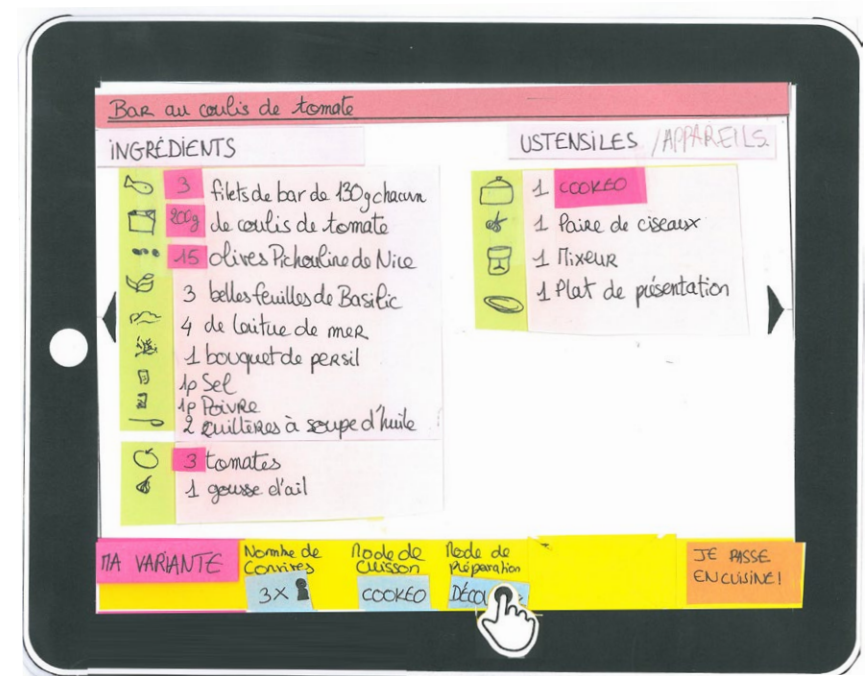 Bar au coulis de tomate
INGRÉDIENTS
3 filets de bar de 130g chacun
200g de coulis de tomate
15 olives Pichouline de Nice
3 belles feuilles de Basilic
4 de laitue de mer
1 bouquet de persil
1p Sel
1p Poivre
2 cuillères à soupe d'huile
3 tomates
1 gousse d'ail
USTENSILES /APPAREILS.
1 COOKEO
1 Paire de ciseaux
1 Mixeur
1 Plat de présentation
MA VARIANTE
Nombre de
Convives
3X
Mode de
Cuisson
COOKEO
Mode de
préparation
JE PASSE
EN CUISINE!